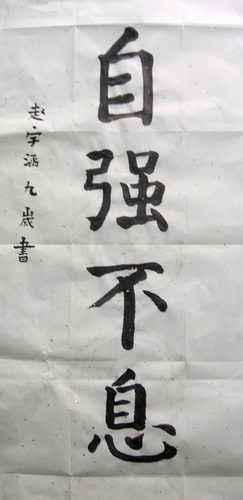 自强不息
赵宇涵九岁書